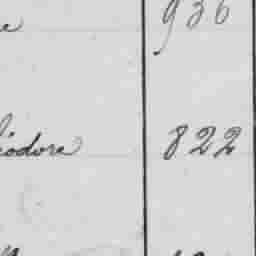 e 936
éodore 822